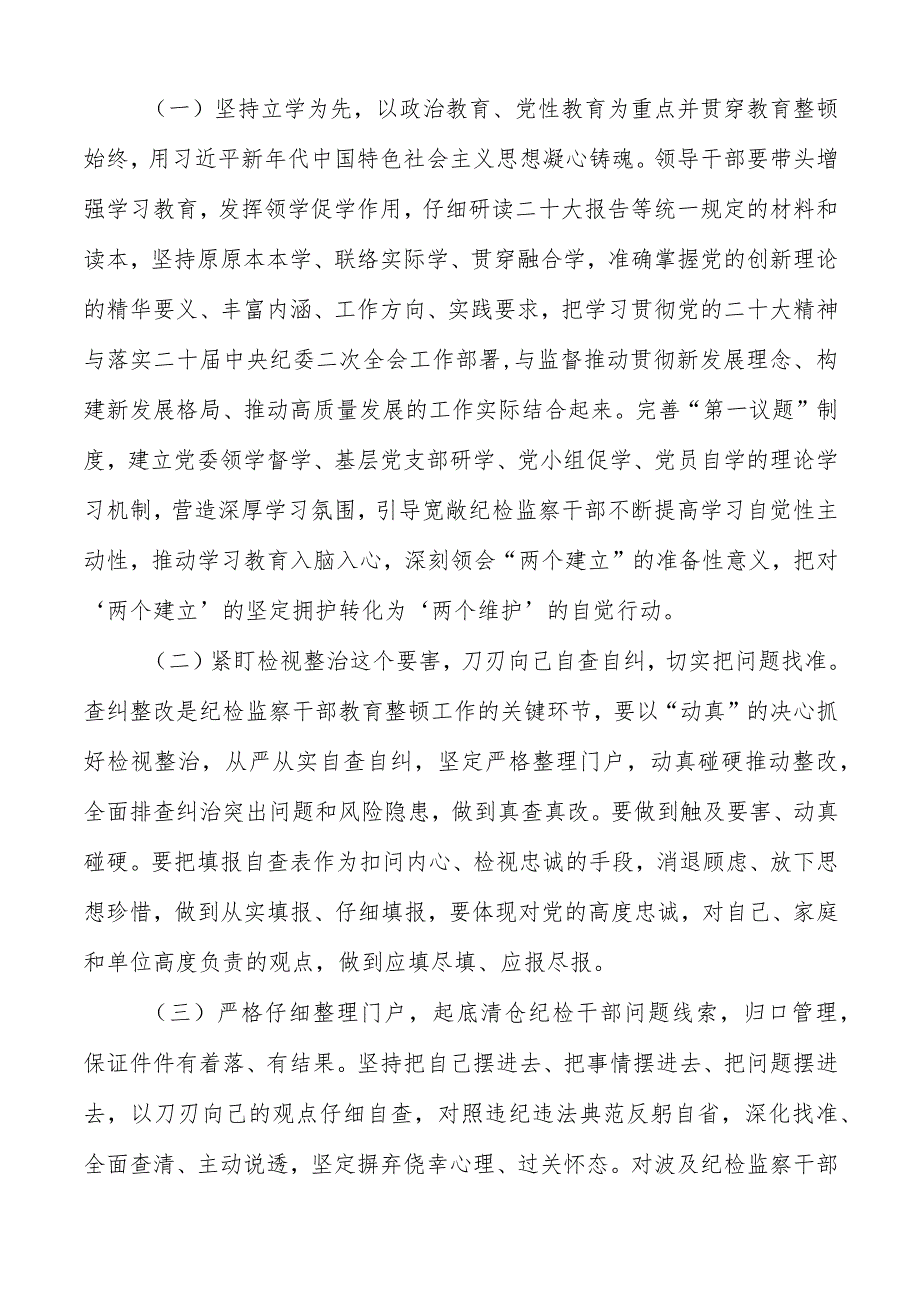 （一）坚持立学为先，以政治教育、党性教育为重点并贯穿教育整顿
始终，用习近平新年代中国特色社会主义思想凝心铸魂。领导干部要带头增
强学习教育，发挥领学促学作用，仔细研读二十大报告等统一规定的材料和
读本，坚持原原本本学、联络实际学、贯穿融合学，准确掌握党的创新理论
的精华要义、丰富内涵、工作方向、实践要求，把学习贯彻党的二十大精神
与落实二十届中央纪委二次全会工作部署,与监督推动贯彻新发展理念、构
建新发展格局、推动高质量发展的工作实际结合起来。完善“第一议题”制
度，建立党委领学督学、基层党支部研学、党小组促学、党员自学的理论学
习机制，营造深厚学习氛围，引导宽敞纪检监察干部不断提高学习自觉性主
动性，推动学习教育入脑入心，深刻领会“两个建立”的准备性意义，把对
‘两个建立’的坚定拥护转化为‘两个维护’的自觉行动。
（二）紧盯检视整治这个要害，刀刃向己自查自纠，切实把问题找准。
查纠整改是纪检监察干部教育整顿工作的关键环节，要以“动真”的决心抓
好检视整治，从严从实自查自纠，坚定严格整理门户，动真碰硬推动整改，
全面排查纠治突出问题和风险隐患，做到真查真改。要做到触及要害、动真
碰硬。要把填报自查表作为扣问内心、检视忠诚的手段，消退顾虑、放下思
想珍惜，做到从实填报、仔细填报，要体现对党的高度忠诚，对自己、家庭
和单位高度负责的观点，做到应填尽填、应报尽报。
（三）严格仔细整理门户，起底清仓纪检干部问题线索，归口管理，
保证件件有着落、有结果。坚持把自己摆进去、把事情摆进去、把问题摆进
去，以刀刃向己的观点仔细自查，对照违纪违法典范反躬自省，深化找准、
全面查清、主动说透，坚定摒弃侥幸心理、过关怀态。对波及纪检监察干部